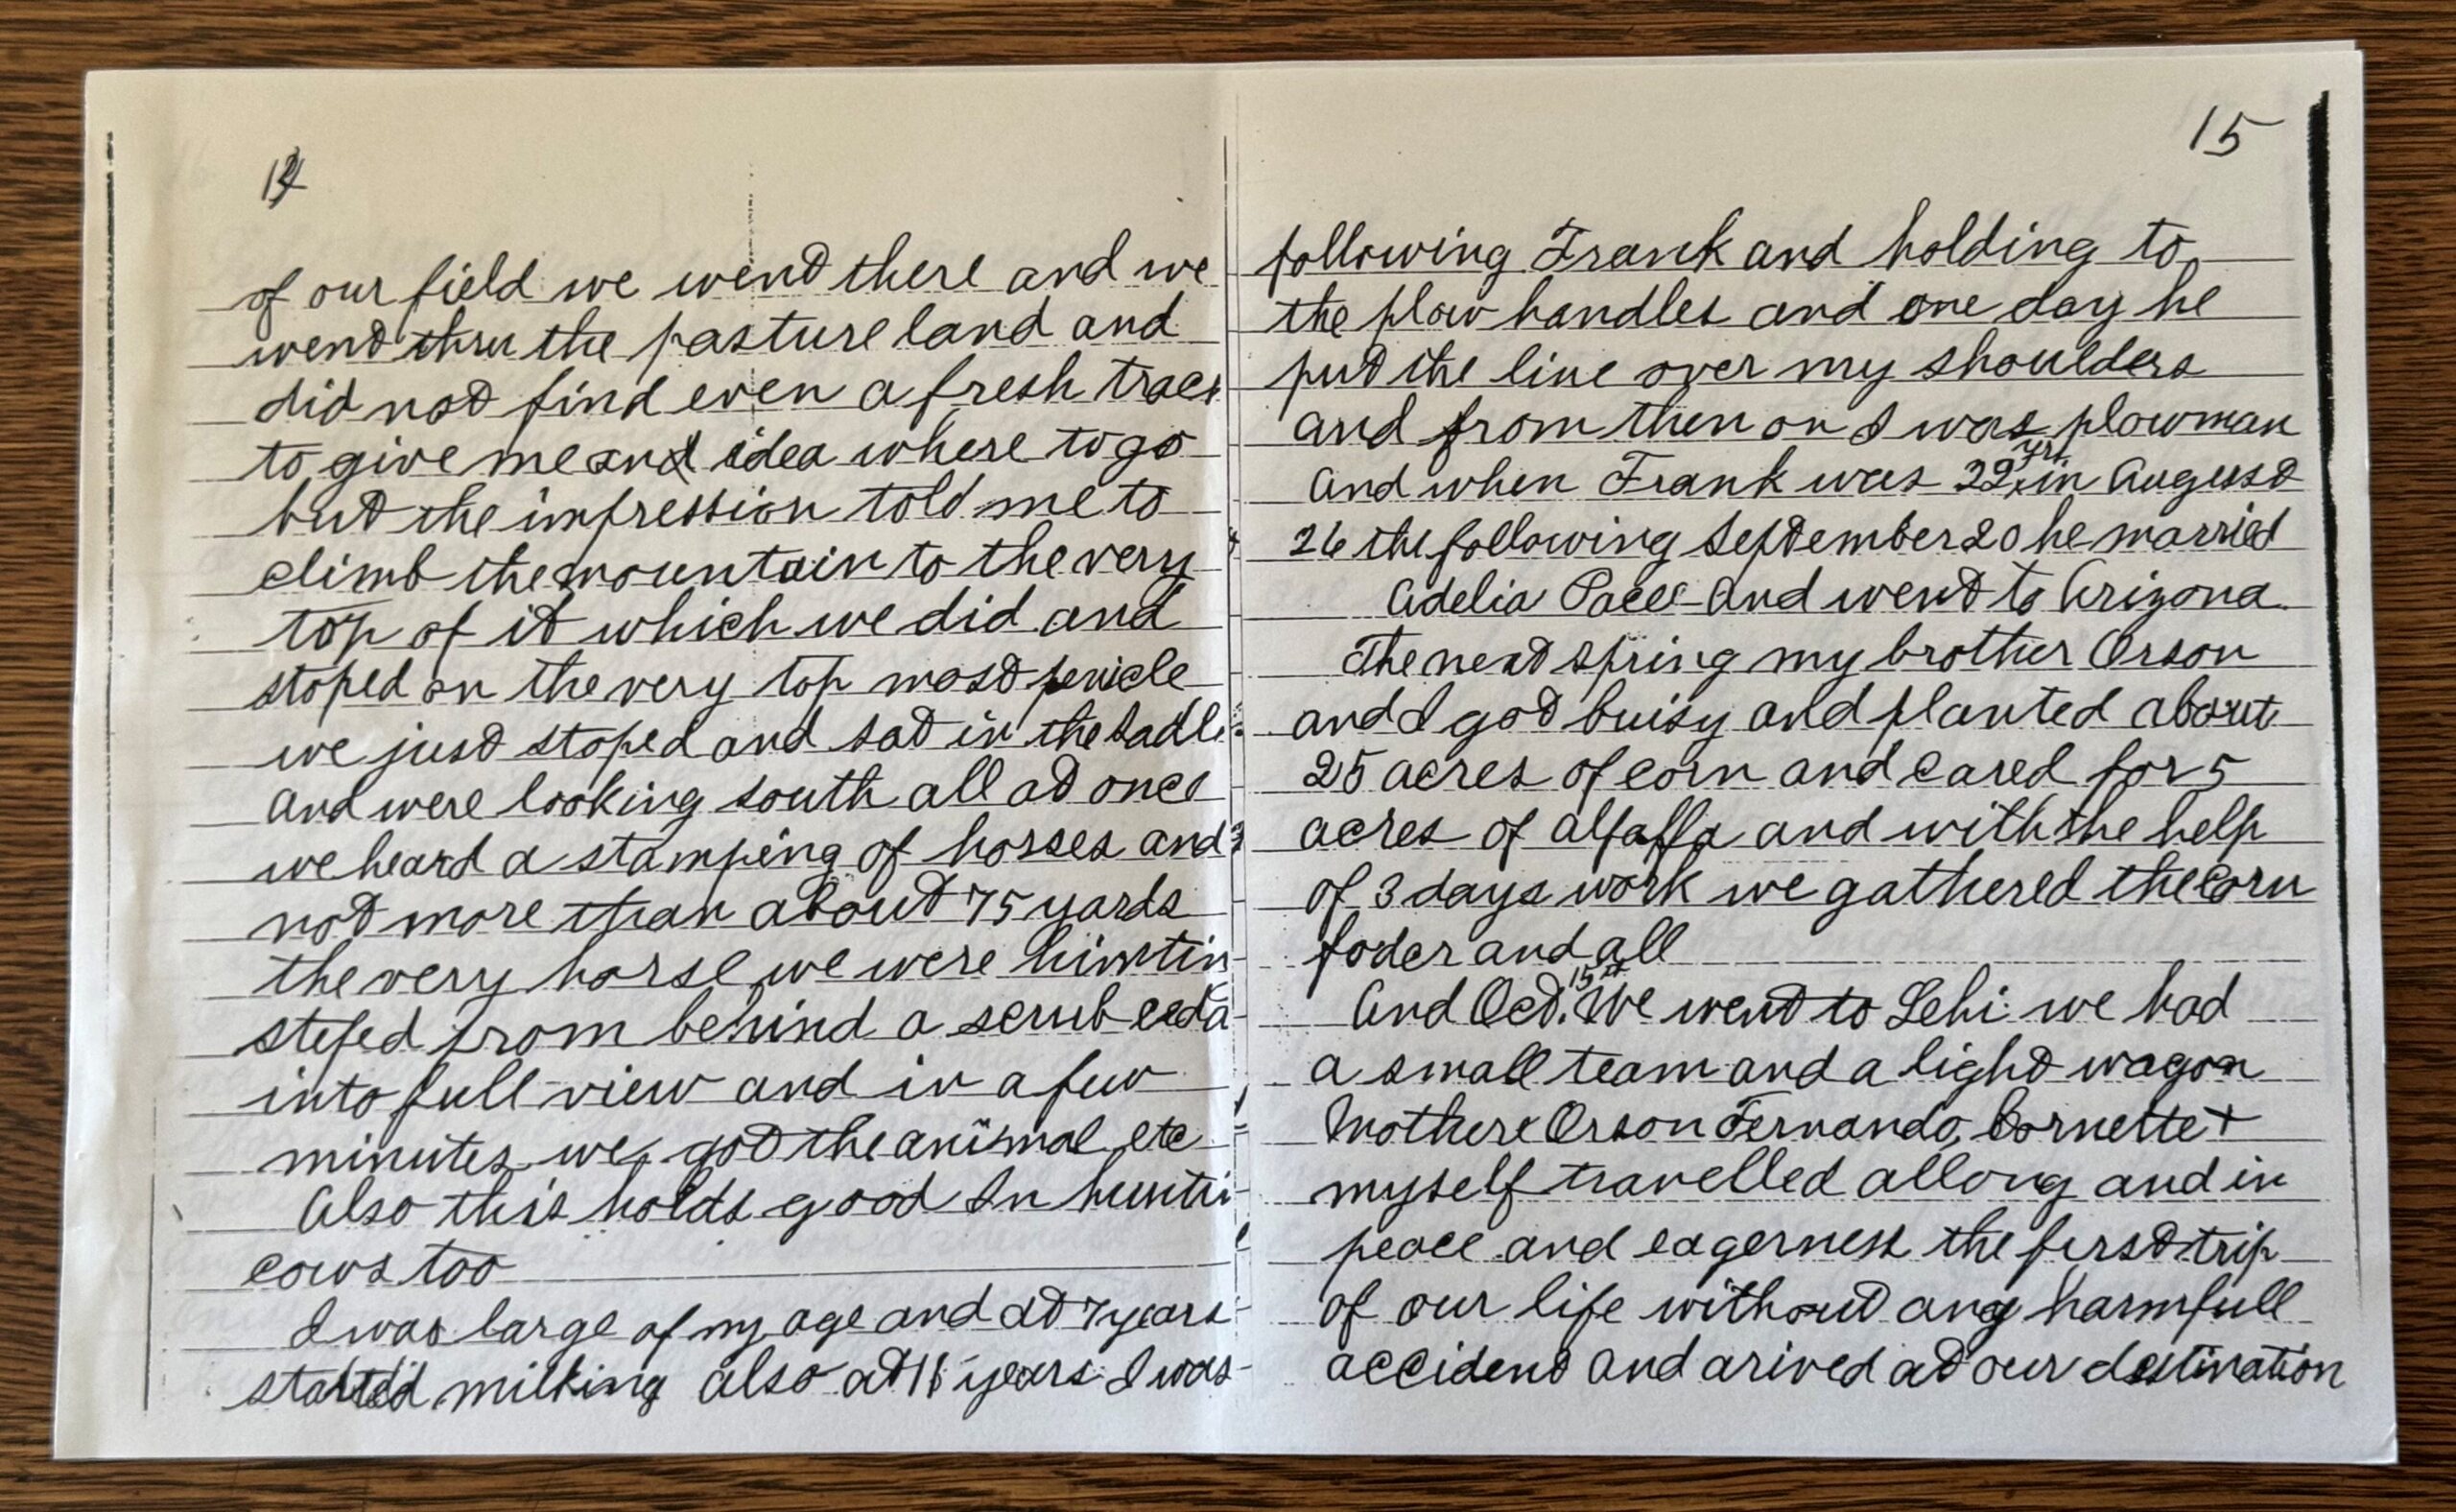 14
of our field we went there and we
went thru the pasture land and
did not find even a fresh track
to give me and idea where to go
but the impression told me to
climb the mountain to the very
top of it which we did and
stoped on the very top most penicle
we just stoped and sat in the sadle
and were looking south all at once
we heard a stamping of horses and
not more than about 75 yards
the very horse we were huntin
steped from behind a scrub ceda
into full view and in a few
minutes we got the animal etc
Also this holds good In hunti
cows too
I was large of my age and at 7 years
started milking also at 16 years I was
15
following Frank and holding to
the plow handles and one day he
put the line over my shoulders
and from then on I was plowman
And when Frank was 22 yrs in August
26 the following September 20 he married
Adelia Pace and went to Arizona
The next spring my brother Orson
and I got buisy and planted about
25 acres of corn and cared for 5
acres of alfaffa and with the help
of 3 days work we gathered the corn
foder and all
And Oct. 15th We went to Lehi we had
a small team and a light wagon
Mothere Orson Fernando, Cornette +
myself travelled allong and in
peace and eagerness the first trip
of our life without any harmfull
accident and arived at our destination